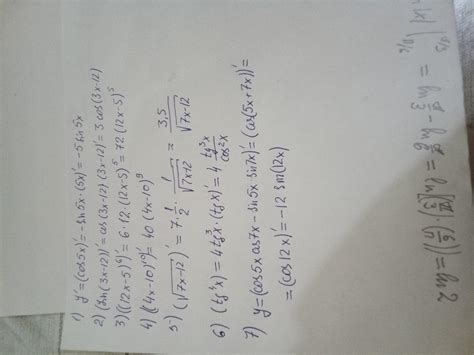 1) y' = (cos 5x)' = -sin 5x · (5x)' = -5 sin 5x
2) (sin(3x-12))' = cos(3x-12)·(3x-12)' = 3 cos(3x-12)
3) ((12x-5)⁶)' = 6·12·(12x-5)⁵ = 72(12x-5)⁵
4) ((4x-10)¹⁰)' = 40(4x-10)⁹
5) (√(7x-12))' = 7·1/2·1/√(7x-12) = 3,5/√(7x-12)
6) (tg⁴x)' = 4tg³x·(tgx)' = 4 tg³x/cos²x
7) y = (cos5x cos7x - sin5x sin7x)' = (cos(5x+7x))' =
= (cos 12x)' = -12 sin(12x)
= ln π/3 - ln π/6 = ln(π/3)·(6/π)) = ln 2